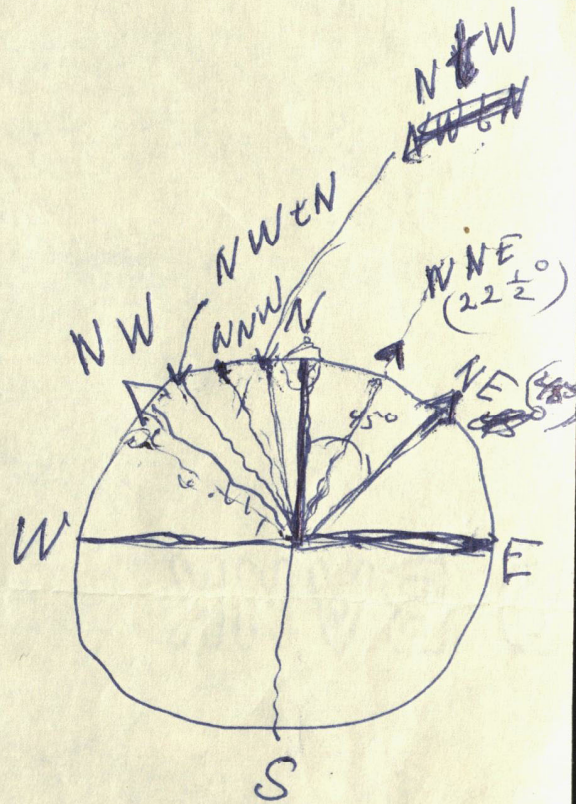 NtW
NWtN
NWtN
NNE
(22½°)
NW
NNW
N
NE
45°
W
E
S